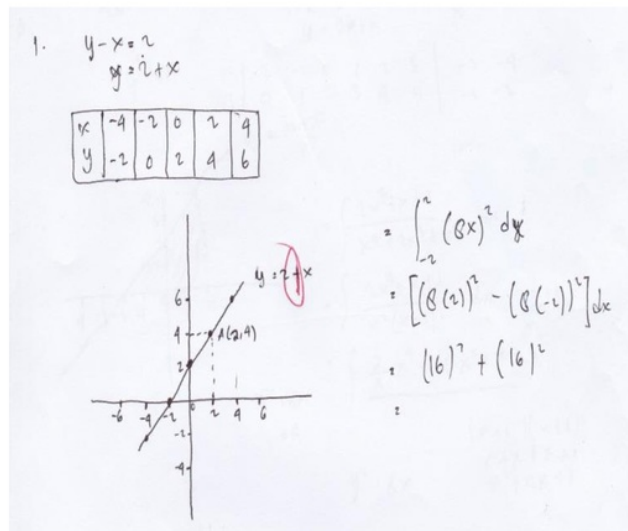 1. y-x=2
y=2+x
x -4 -2 0 2 4
y -2 0 2 4 6
y=2+x
6
4 A(2,4)
2
-6 -4 -2 0 2 4 6
-2
-4
= ∫₋₂² (8x)² dx
= [(8(2))² - (8(-2))²] dx
= (16)² + (16)²
=